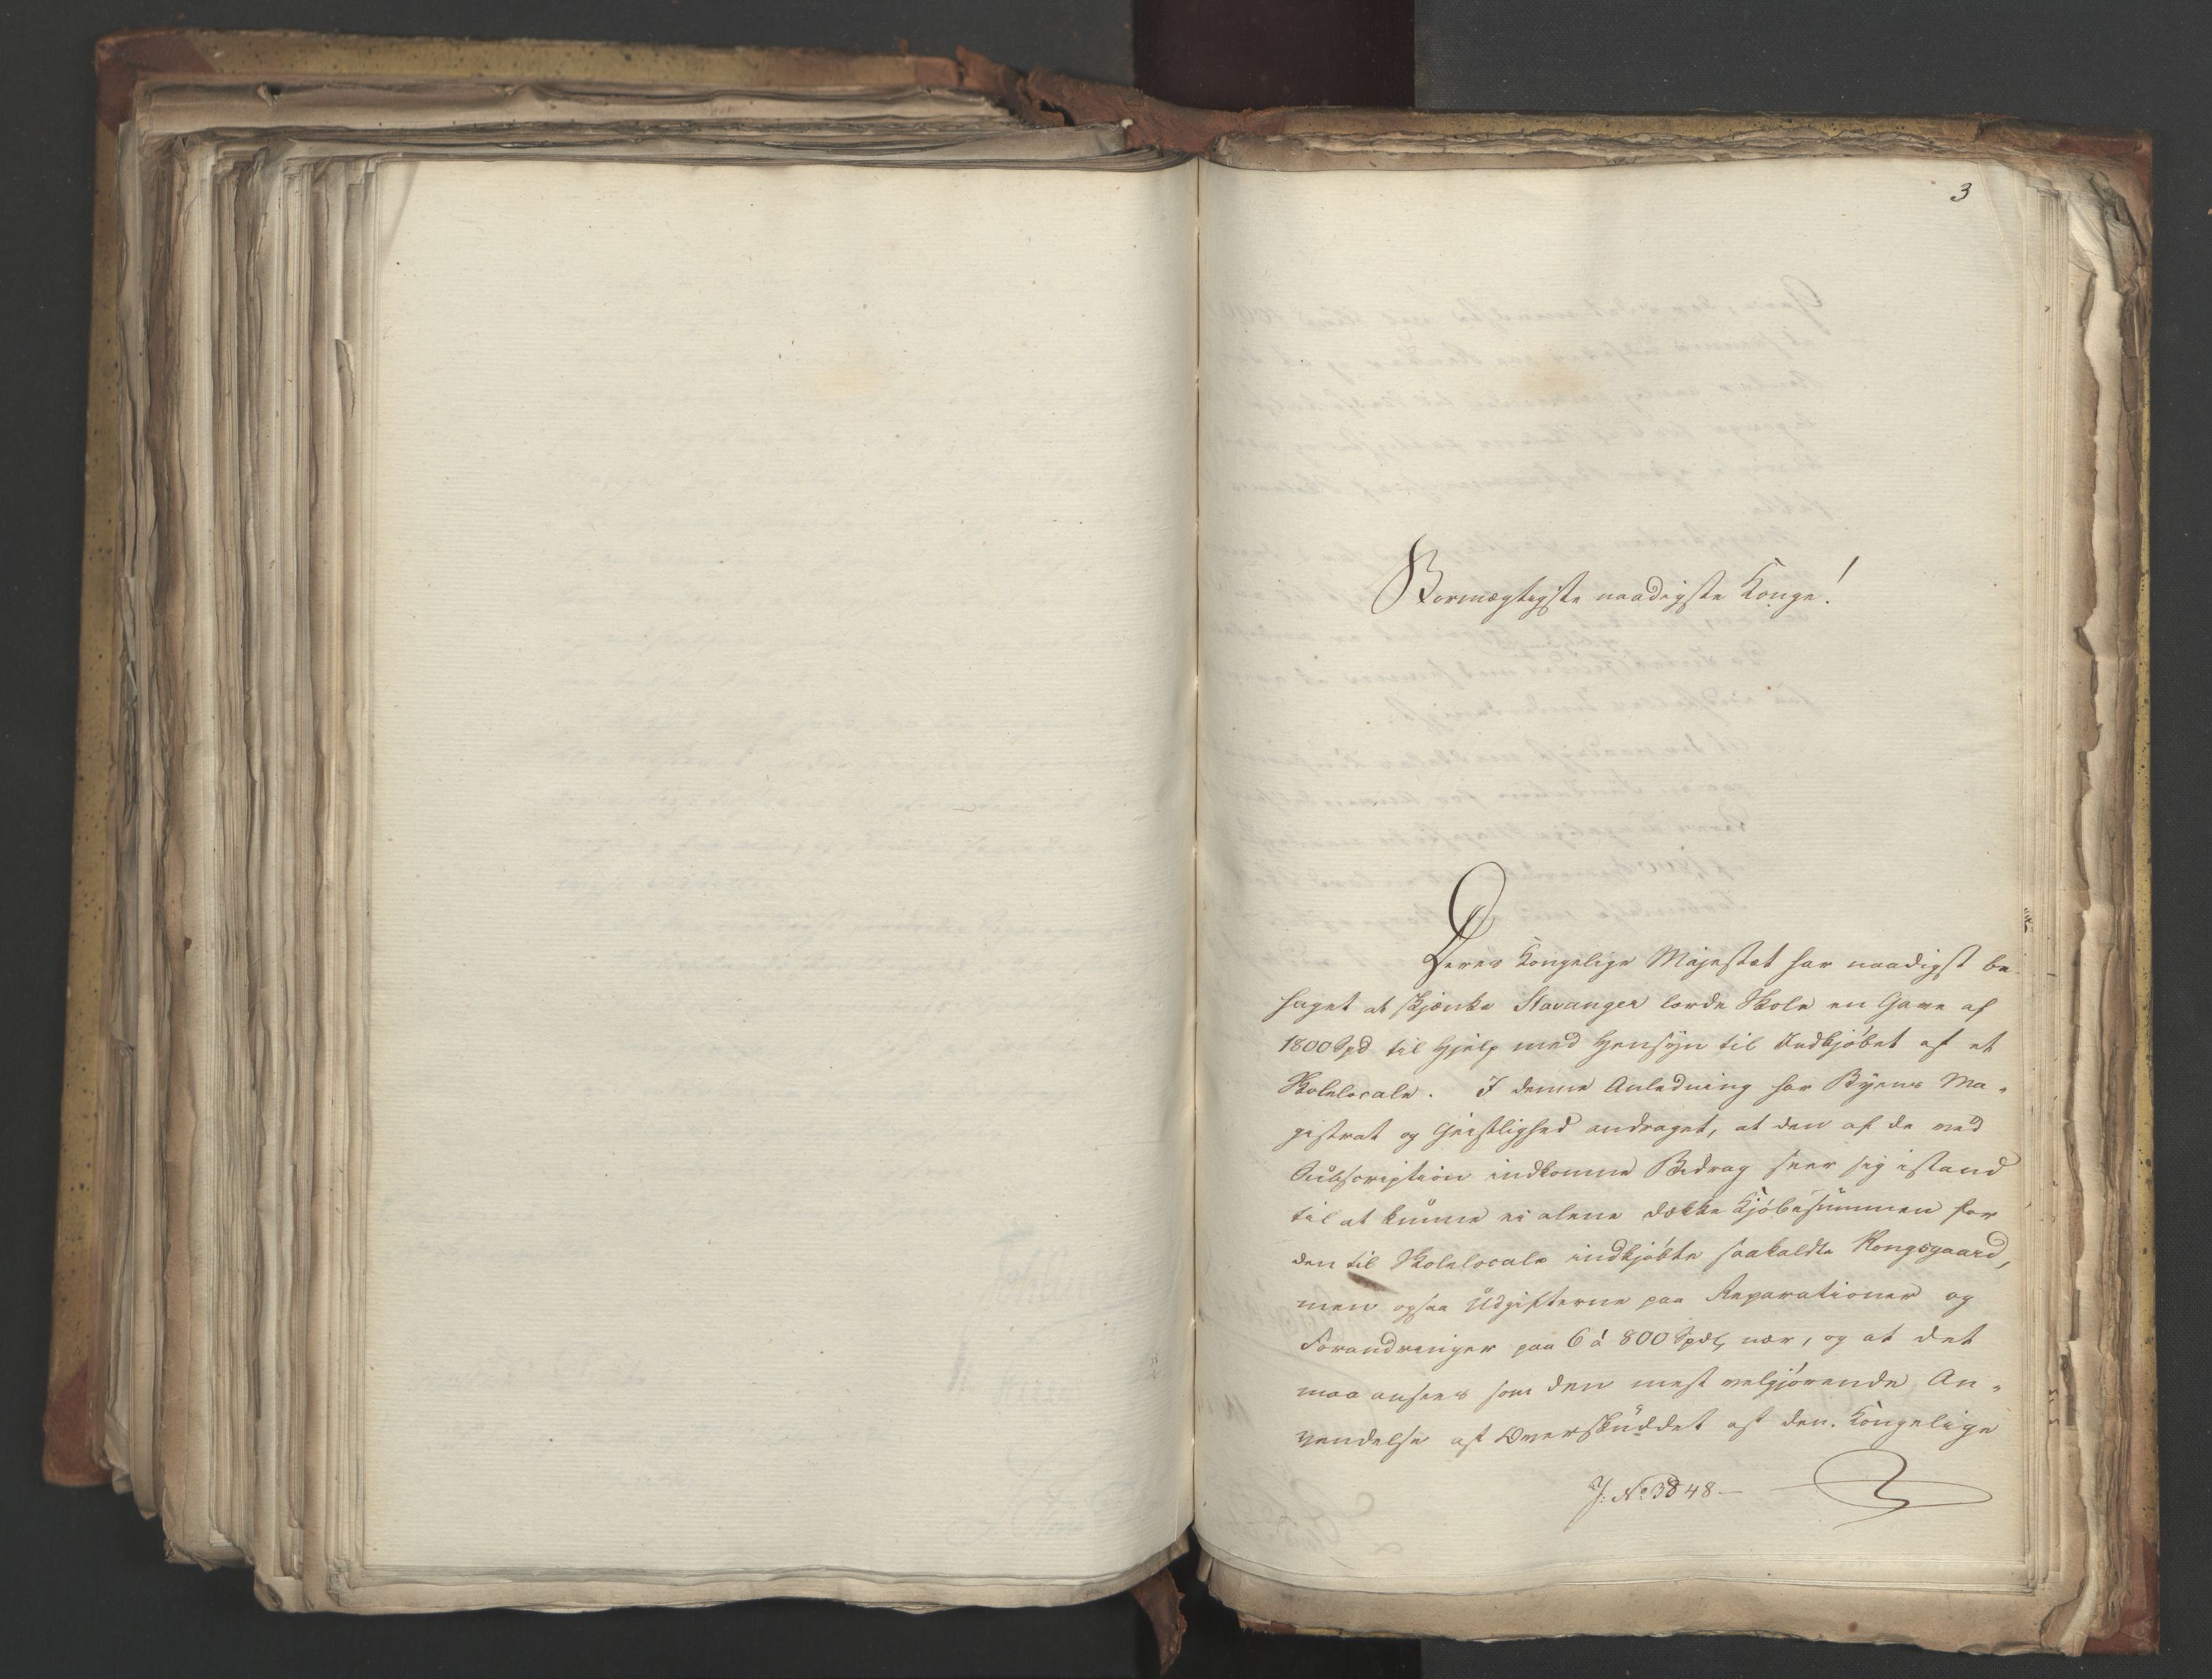 3
Stormægtigste naadigste Konge!
Deres Kongelige Majestæt har naadigst be
haget at skjænke Stavanger lærde Skole en Gave af
1800 Spd til Hjelp med Hensyn til Indkjöbet af et
Skolelocale. I denne Anledning har Byens Ma-
gistrat og Geistlighed andraget, at den af de ved
Subscription indkomne Bidrag seer sig istand
til at kunne ei alene dække Kjöbesummen for
den til Skolelocale indkjöbte saakaldte Kongsgaard,
men ogsaa Udgifterne paa Reparationer og
Forandringer paa 6 à 800 Spdlr nær, og at det
maa ansees som den mest velgjörende An-
vendelse af Overskuddet af den Kongelige
J: No 3848 —